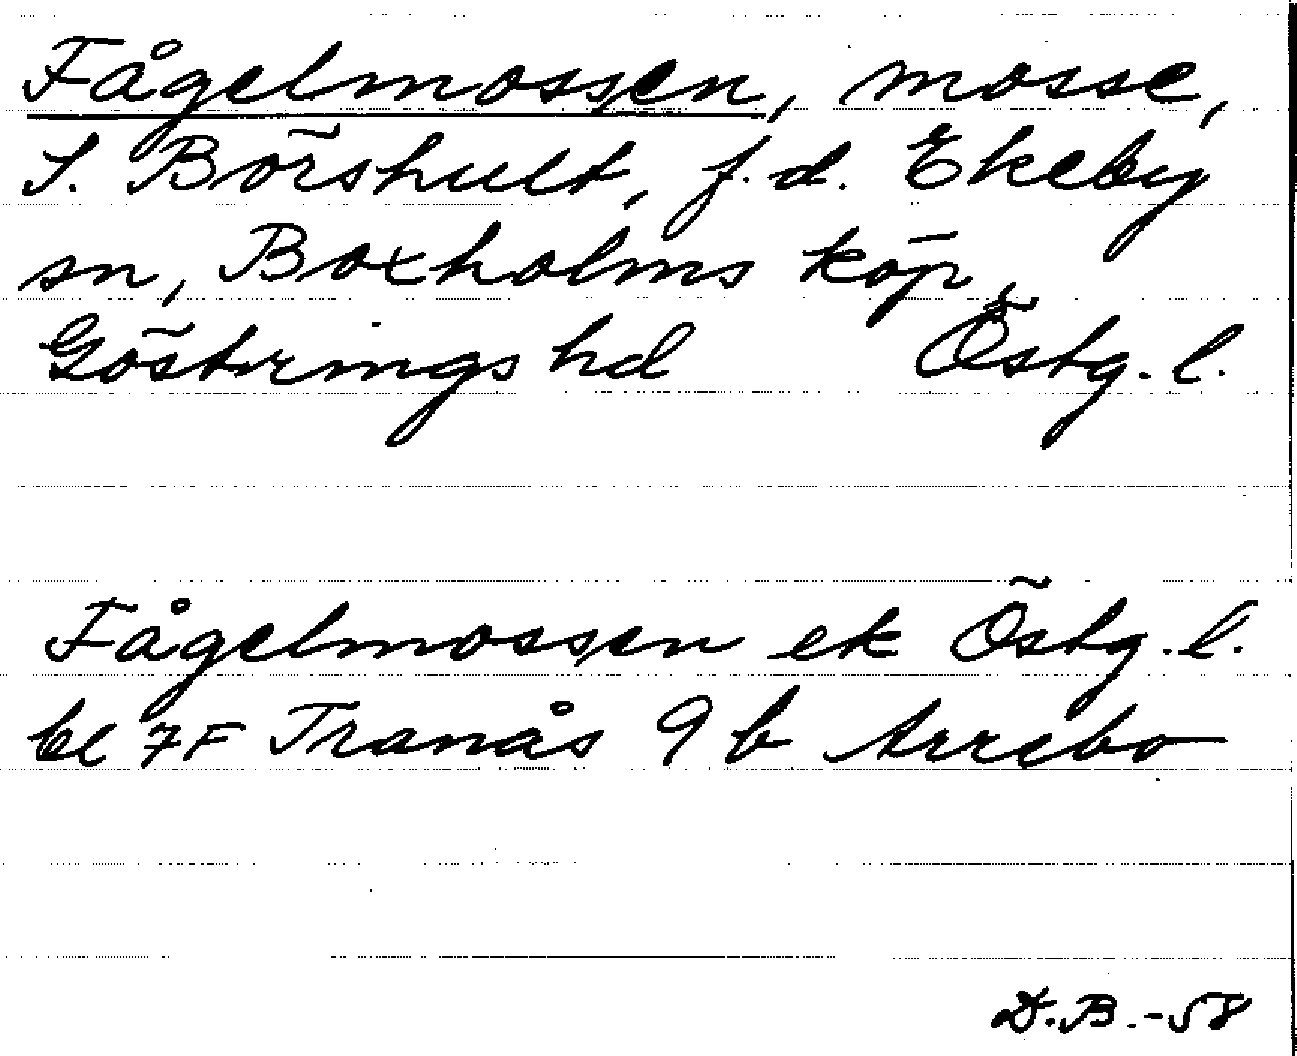 Fågelmossen, mosse,
S. Börshult, f.d. Ekeby
sn, Boxholms köp,
Göstrings hd Östg. l.
Fågelmossen ek Östg. l.
bl 7F Tranås 9 b Arrebo
D.B. -58